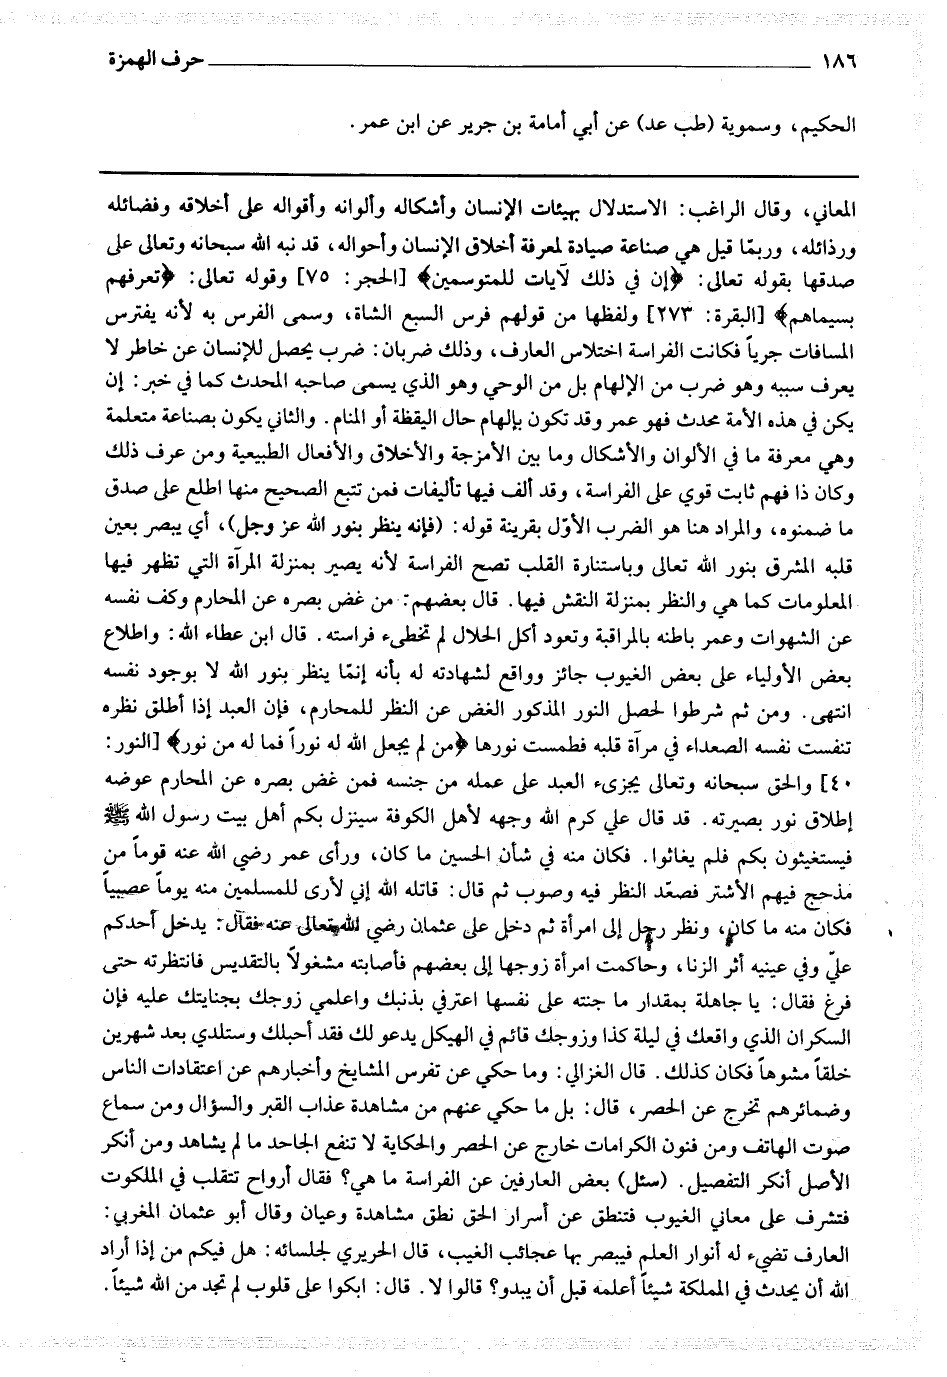 ١٨٦ حرف الهمزة
الحكيم، وسموية (طب عد) عن أبي أمامة بن جرير عن ابن عمر.
المعاني، وقال الراغب: الاستدلال بهيئات الإنسان وأشكاله وألوانه وأقواله على أخلاقه وفضائله
ورذائله، وربمّا قيل هي صناعة صيادة لمعرفة أخلاق الإنسان وأحواله، قد نبه الله سبحانه وتعالى على
صدقها بقوله تعالى: ﴿إن في ذلك لآيات للمتوسمين﴾ [الحجر: ٧٥] وقوله تعالى: ﴿تعرفهم
بسيماهم﴾ [البقرة: ٢٧٣] ولفظها من قولهم فرس السبع الشاة، وسمى الفرس به لأنه يفترس
المسافات جرياً فكانت الفراسة اختلاس العارف، وذلك ضربان: ضرب يحصل للإنسان عن خاطر لا
يعرف سببه وهو ضرب من الإلهام بل من الوحي وهو الذي يسمى صاحبه المحدث كما في خبر: إن
يكن في هذه الأمة محدث فهو عمر وقد تكون بإلهام حال اليقظة أو المنام. والثاني يكون بصناعة متعلمة
وهي معرفة ما في الألوان والأشكال وما بين الأمزجة والأخلاق والأفعال الطبيعية ومن عرف ذلك
وكان ذا فهم ثابت قوي على الفراسة، وقد ألف فيها تأليفات فمن تتبع الصحيح منها اطلع على صدق
ما ضمنوه، والمراد هنا هو الضرب الأوّل بقرينة قوله: (فإنه ينظر بنور الله عز وجل)، أي يبصر بعين
قلبه المشرق بنور الله تعالى وباستنارة القلب تصح الفراسة لأنه يصير بمنزلة المرآة التي تظهر فيها
المعلومات كما هي والنظر بمنزلة النقش فيها. قال بعضهم: من غض بصره عن المحارم وكف نفسه
عن الشهوات وعمر باطنه بالمراقبة وتعود أكل الحلال لم تخطىء فراسته. قال ابن عطاء الله: واطلاع
بعض الأولياء على بعض الغيوب جائز وواقع لشهادته له بأنه إنمّا ينظر بنور الله لا بوجود نفسه
انتهى. ومن ثم شرطوا لحصل النور المذكور الغض عن النظر للمحارم، فإن العبد إذا أطلق نظره
تنفست نفسه الصعداء في مرآة قلبه فطمست نورها ﴿من لم يجعل الله له نوراً فما له من نور﴾ [النور:
٤٠] والحق سبحانه وتعالى يجزىء العبد على عمله من جنسه فمن غض بصره عن المحارم عوضه
إطلاق نور بصيرته. قد قال علي كرم الله وجهه لأهل الكوفة سينزل بكم أهل بيت رسول الله ﷺ
فيستغيثون بكم فلم يغاثوا. فكان منه في شأن الحسين ما كان، ورأى عمر رضي الله عنه قوماً من
مذحج فيهم الأشتر فصعّد النظر فيه وصوب ثم قال: قاتله الله إني لأرى للمسلمين منه يوماً عصيباً
فكان منه ما كان، ونظر رجل إلى امرأة ثم دخل على عثمان رضي الله تعالى عنه فقال: يدخل أحدكم
عليّ وفي عينيه أثر الزنا، وحاكمت امرأة زوجها إلى بعضهم فأصابته مشغولاً بالتقديس فانتظرته حتى
فرغ فقال: يا جاهلة بمقدار ما جنته على نفسها اعترفي بذنبك واعلمي زوجك بجنايتك عليه فإن
السكران الذي واقعك في ليلة كذا وزوجك قائم في الهيكل يدعو لك فقد أحبلك وستلدي بعد شهرين
خلقاً مشوهاً فكان كذلك. قال الغزالي: وما حكي عن تفرس المشايخ وأخبارهم عن اعتقادات الناس
وضمائرهم تخرج عن الحصر، قال: بل ما حكي عنهم من مشاهدة عذاب القبر والسؤال ومن سماع
صوت الهاتف ومن فنون الكرامات خارج عن الحصر والحكاية لا تنفع الجاحد ما لم يشاهد ومن أنكر
الأصل أنكر التفصيل. (سئل) بعض العارفين عن الفراسة ما هي؟ فقال أرواح تتقلب في الملكوت
فتشرف على معاني الغيوب فتنطق عن أسرار الحق نطق مشاهدة وعيان وقال أبو عثمان المغربي:
العارف تضيء له أنوار العلم فيبصر بها عجائب الغيب، قال الحريري لجلسائه: هل فيكم من إذا أراد
الله أن يحدث في المملكة شيئاً أعلمه قبل أن يبدو؟ قالوا لا. قال: ابكوا على قلوب لم تجد من الله شيئاً.